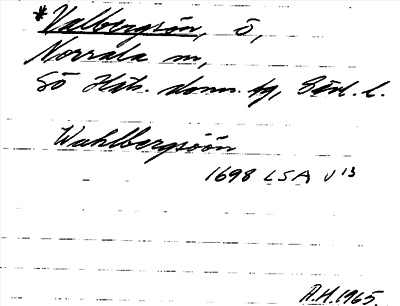 *Valbergsön, ö,
Norrala sn,
Sö Häls. doms. tg, Gävl. l.
Wahlbergsöön
1698 LSA V 13
A.H. 1965.